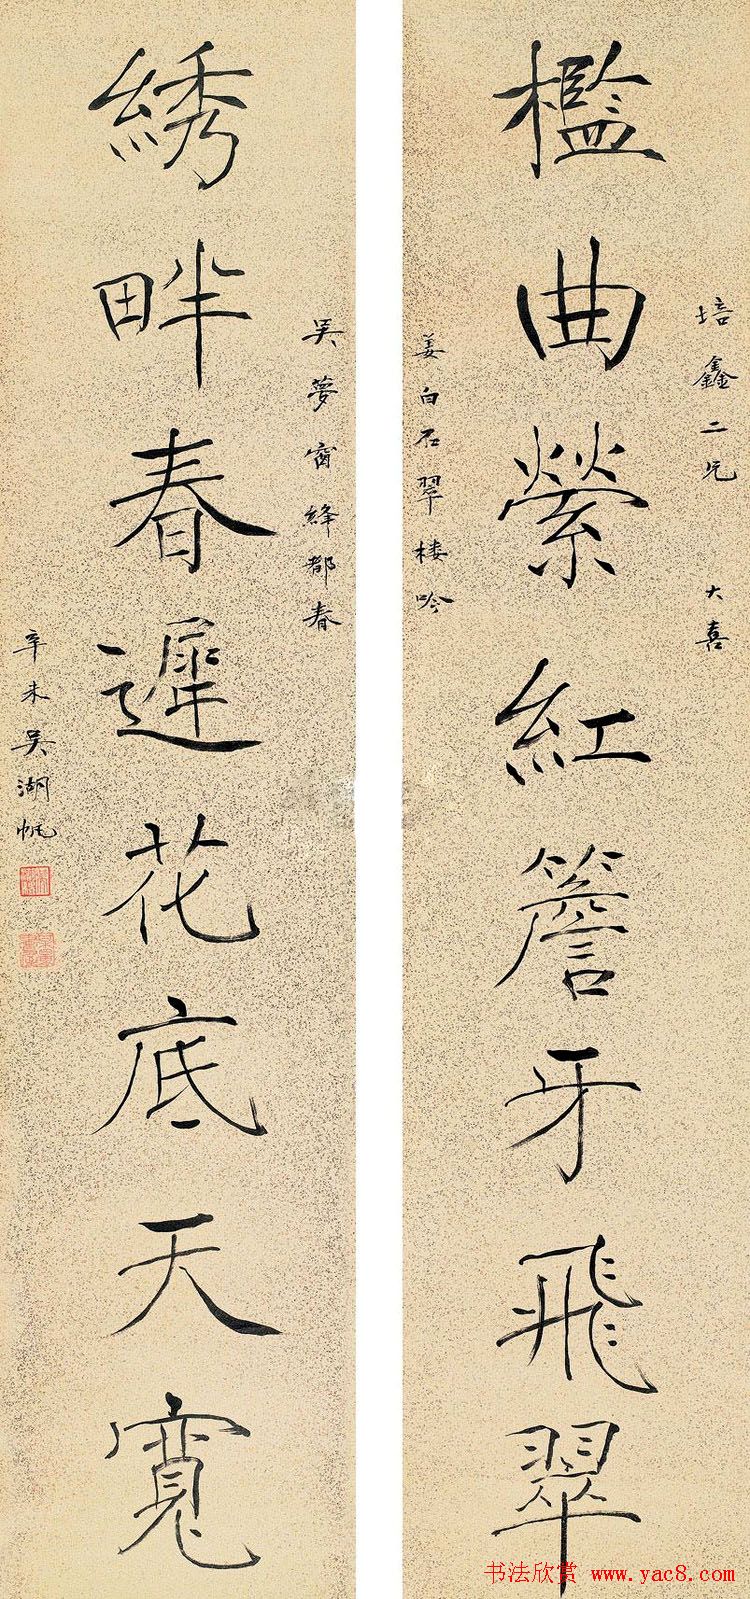 培鑫二兄 大喜
檻曲縈紅簷牙飛翠
姜白石翠楼吟
吴夢窗絳都春
綉畔春遲花底天寬
辛未吴湖帆
书法欣赏 www.yac8.com